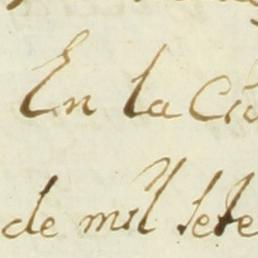 En la Ciu
de mil sete